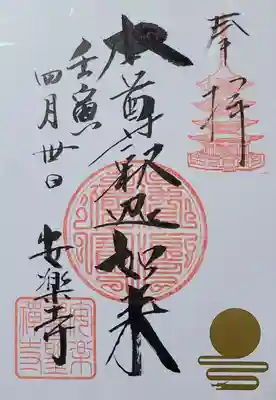 奉拝
本尊釈迦如来
壬寅
四月廿日
安樂寺